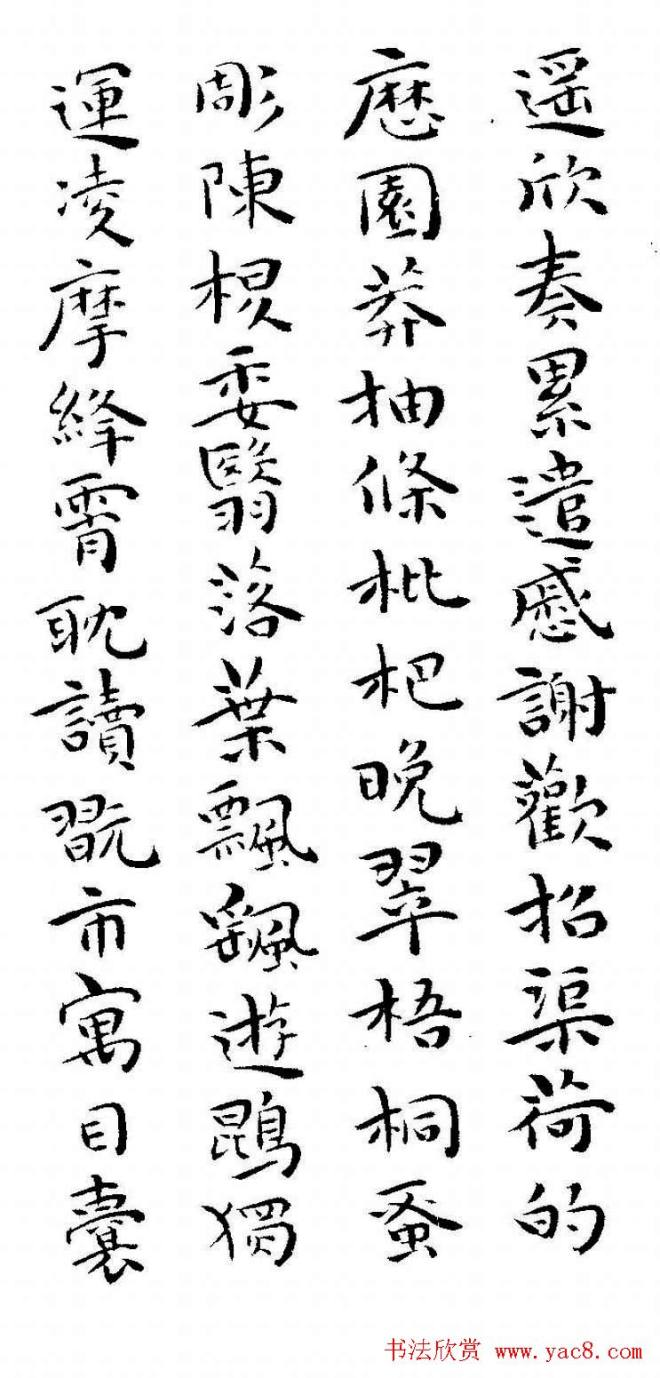 遥欣奏累遣慼謝歡招渠荷的
歷園莽抽條枇杷晚翠梧桐蚤
彫陳根委翳落葉飄飖遊鵾獨
運凌摩絳霄耽讀翫市寓目囊
书法欣赏 www.yac8.com